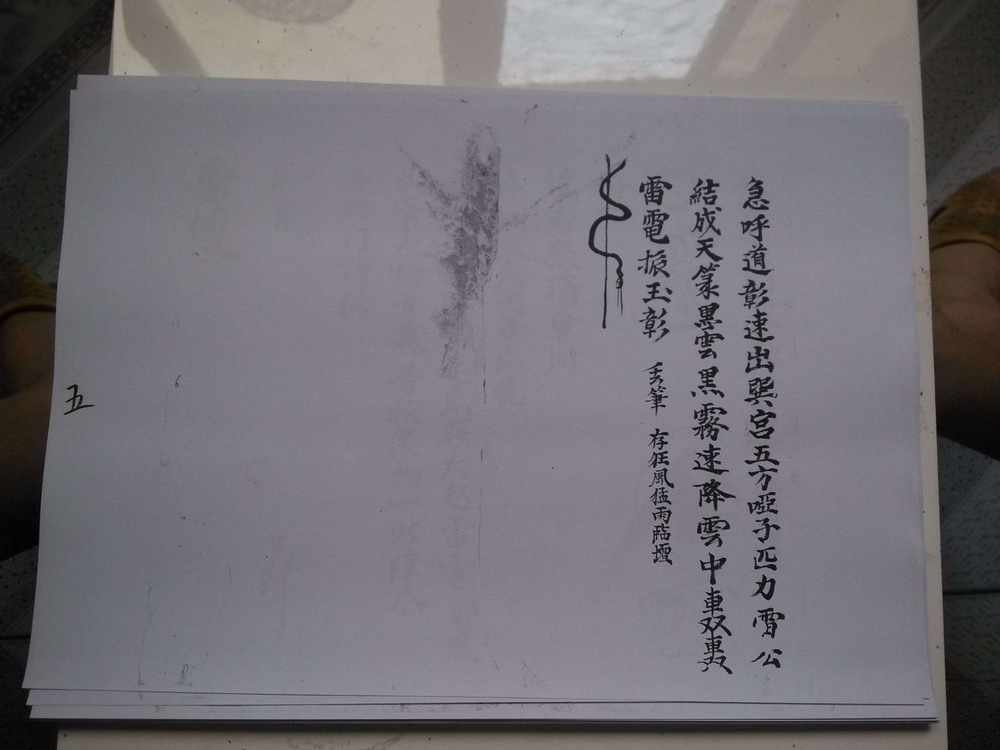 急呼道彰速出巽宮五方啞子匹力雷公
結成天篆黑雲黑霧速降雲中車双車双
雷電振玉彰 丢筆 存狂風猛雨臨壇
五